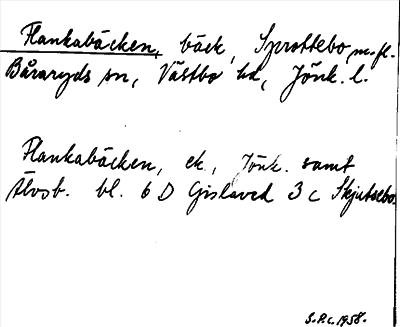 Flankabäcken, bäck, Sprottebo m. fl.
Båraryds sn, Västbo hd, Jönk. l.
Flankabäcken, ek., Jönk. samt
Älvsb. bl. 6 D Gislaved 3 c Skjutsebo.
S.P.c. 1958.